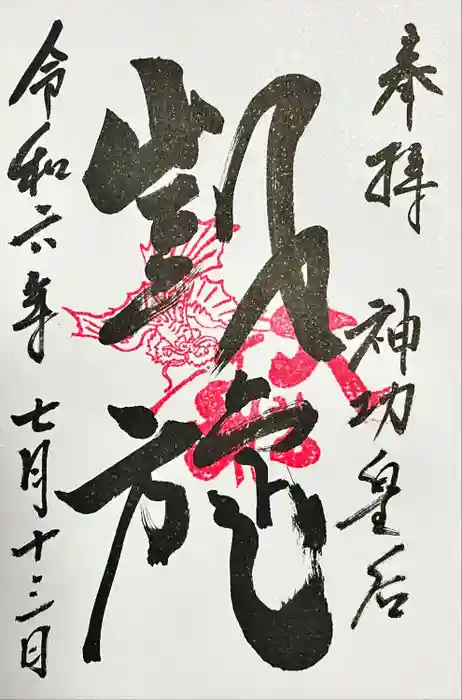 奉拝
神功皇后
凱旋
令和六年七月十三日